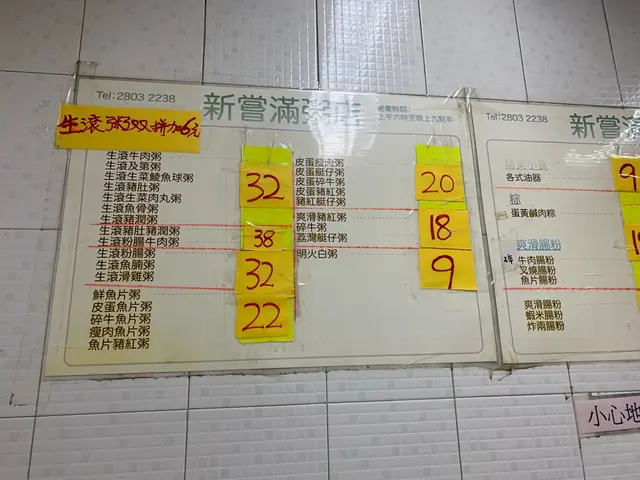 Tel:2803 2238
新嘗滿粥店
營業時間:
上午六時至晚上九點半
生滾粥双拼加6元
生滾牛肉粥
生滾及第粥
生滾生菜鯪魚球粥
生滾豬肚粥
生滾生菜肉丸粥
生滾魚骨粥
生滾豬潤粥
生滾豬肚豬潤粥
生滾粉腸牛肉粥
生滾粉腸粥
生滾魚腩粥
生滾滑雞粥
鮮魚片粥
皮蛋魚片粥
碎牛魚片粥
瘦肉魚片粥
魚片豬紅粥
32
38
32
22
皮蛋瘦肉粥
皮蛋艇仔粥
皮蛋碎牛粥
皮蛋豬紅粥
豬紅艇仔粥
爽滑豬紅粥
碎牛粥
荔灣艇仔粥
明火白粥
20
18
9
Tel:2803 2238
新嘗
各式油器
9
粽
蛋黃鹹肉粽
爽滑腸粉
牛肉腸粉
叉燒腸粉
魚片腸粉
爽滑腸粉
蝦米腸粉
炸兩腸粉
小心地